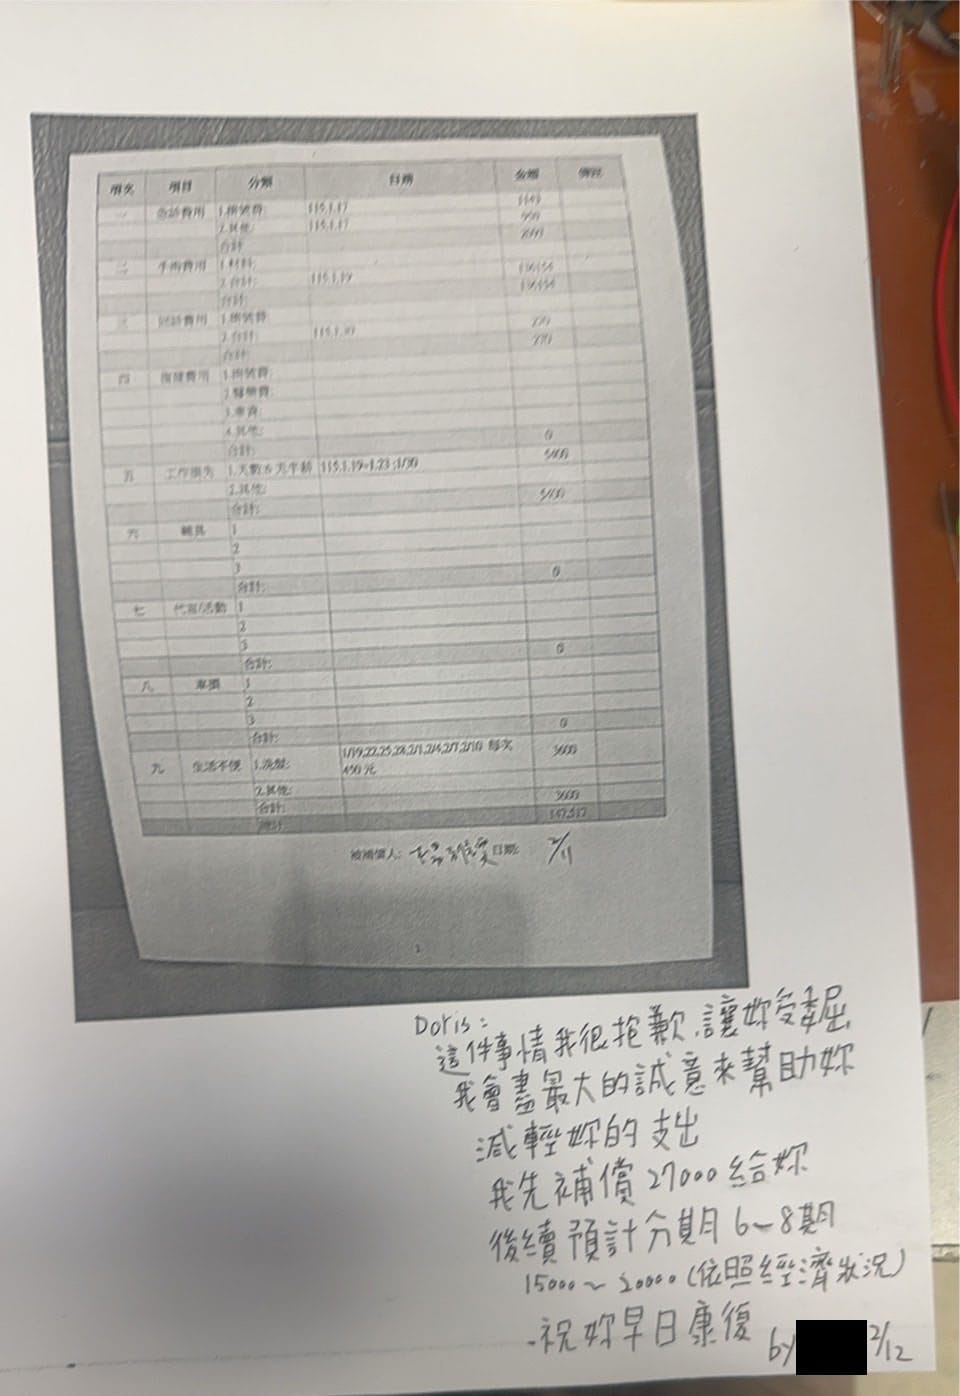 項次 項目 分類 日期 金額 備註
一 急診費用 1.掛號費: 115.1.17
2.其他: 115.1.17
合計
二 手術費用 1.材料:
2.合計: 115.1.19
合計:
三 回診費用 1.掛號費
2.合計: 115.1.30
合計:
四 復健費用 1.掛號費:
2.醫藥費:
3.車資:
4.其他: 0
合計:
五 工作損失 1.天數6天半薪 115.1.19~1.23 ;1/30 5400
2.其他: 5400
合計:
六 輔具 1
2
3 0
合計:
七 代買/活動 1
2
3 0
合計:
八 車損 1
2
3 0
合計:
九 生活不便 1.洗髮: 1/19,22,25,28,2/1,2/4,2/7,2/10 每次450元 3600
2.其他: 3600
合計: 147,517
總計
被補償人: 日期: 2/11
Doris:
這件事情我很抱歉,讓妳受委屈
我會盡最大的誠意來幫助妳
減輕妳的支出
我先補償27000給妳
後續預計分期6~8期
15000~20000(依照經濟狀況)
祝妳早日康復 by 2/12